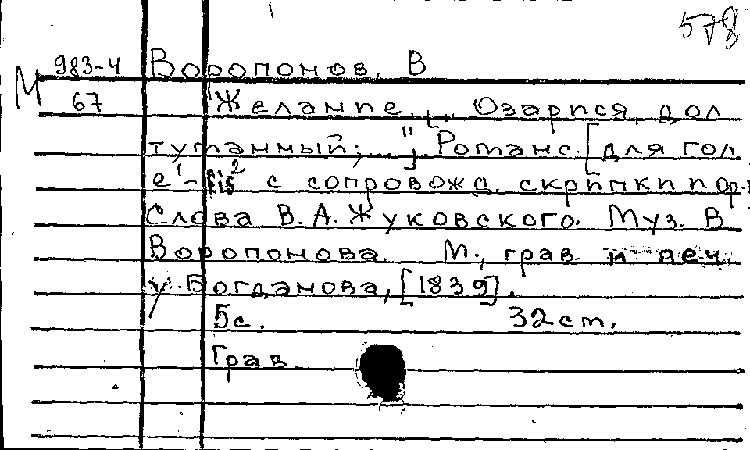 578
983-4 Воропонов, В
М 67 "Желание. „ Озарися, дол
туманный; ..." Романс. [для гол.
e¹-fis² с сопровожд. скрипки и ф-п.
Слова В. А. Жуковского. Муз. В
Воропонова. М., грав и печ.
у Богданова, [1839].
5с. 32 cm.
Грав.